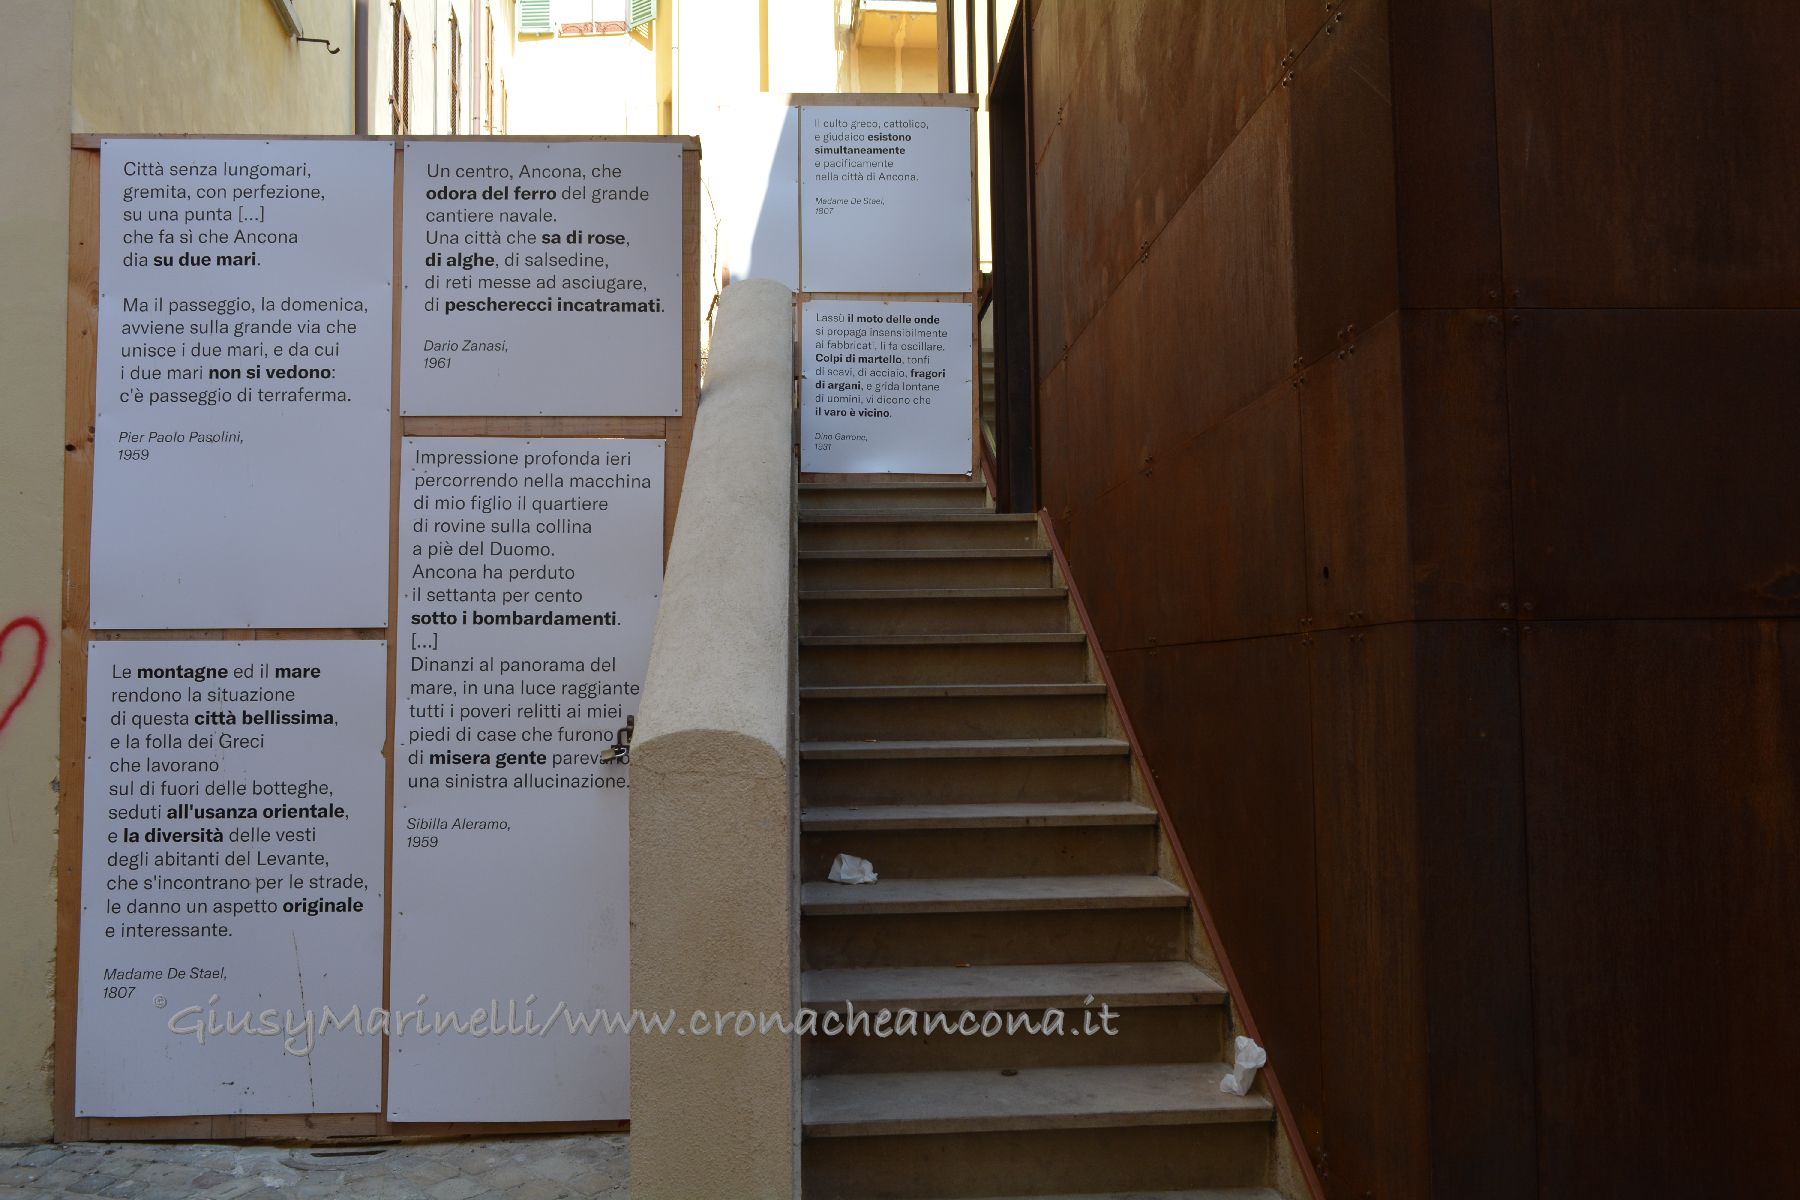 Città senza lungomari,
gremita, con perfezione,
su una punta [...]
che fa sì che Ancona
dia su due mari.
Ma il passeggio, la domenica,
avviene sulla grande via che
unisce i due mari, e da cui
i due mari non si vedono:
c'è passeggio di terraferma.
Pier Paolo Pasolini,
1959
Le montagne ed il mare
rendono la situazione
di questa città bellissima,
e la folla dei Greci
che lavorano
sul di fuori delle botteghe,
seduti all'usanza orientale,
e la diversità delle vesti
degli abitanti del Levante,
che s'incontrano per le strade,
le danno un aspetto originale
e interessante.
Madame De Stael,
1807
Un centro, Ancona, che
odora del ferro del grande
cantiere navale.
Una città che sa di rose,
di alghe, di salsedine,
di reti messe ad asciugare,
di pescherecci incatramati.
Dario Zanasi,
1961
Impressione profonda ieri
percorrendo nella macchina
di mio figlio il quartiere
di rovine sulla collina
a piè del Duomo.
Ancona ha perduto
il settanta per cento
sotto i bombardamenti.
[...]
Dinanzi al panorama del
mare, in una luce raggiante
tutti i poveri relitti ai miei
piedi di case che furono
di misera gente parevano
una sinistra allucinazione.
Sibilla Aleramo,
1959
Il culto greco, cattolico,
e giudaico esistono
simultaneamente
e pacificamente
nella città di Ancona.
Madame De Stael,
1807
Lassù il moto delle onde
si propaga insensibilmente
ai fabbricati, li fa oscillare.
Colpi di martello, tonfi
di scavi, di acciaio, fragori
di argani, e grida lontane
di uomini, vi dicono che
il varo è vicino.
Dino Garrone,
1931
©GiusyMarinelli/www.cronacheancona.it